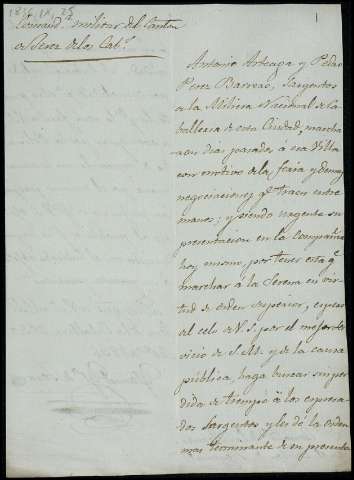 1836, IX, 25
1
Comand.ª militar del Canton
de Xerez de los Cab.s
Antonio Arteaga y Pedro
Perez Barrero, Sargentos
de la Milicia Nacional de Ca
balleria de esta Ciudad, marcha
ron dias pasados á esa Villa
con motivo de la feria y demas
negociaciones q.e traen entre
manos; y siendo urgente su
presentacion en la Compañia
hoy mismo, por tener esta q.e
marchar a la Serena en vir
tud de orden superior, espero
del celo de V.S. por el mejor ser
vicio de S.M. y de la causa
pública, haga buscar sin per
dida de tiempo á los expresa
dos Sargentos y les dé la orden
mas terminante de su presenta